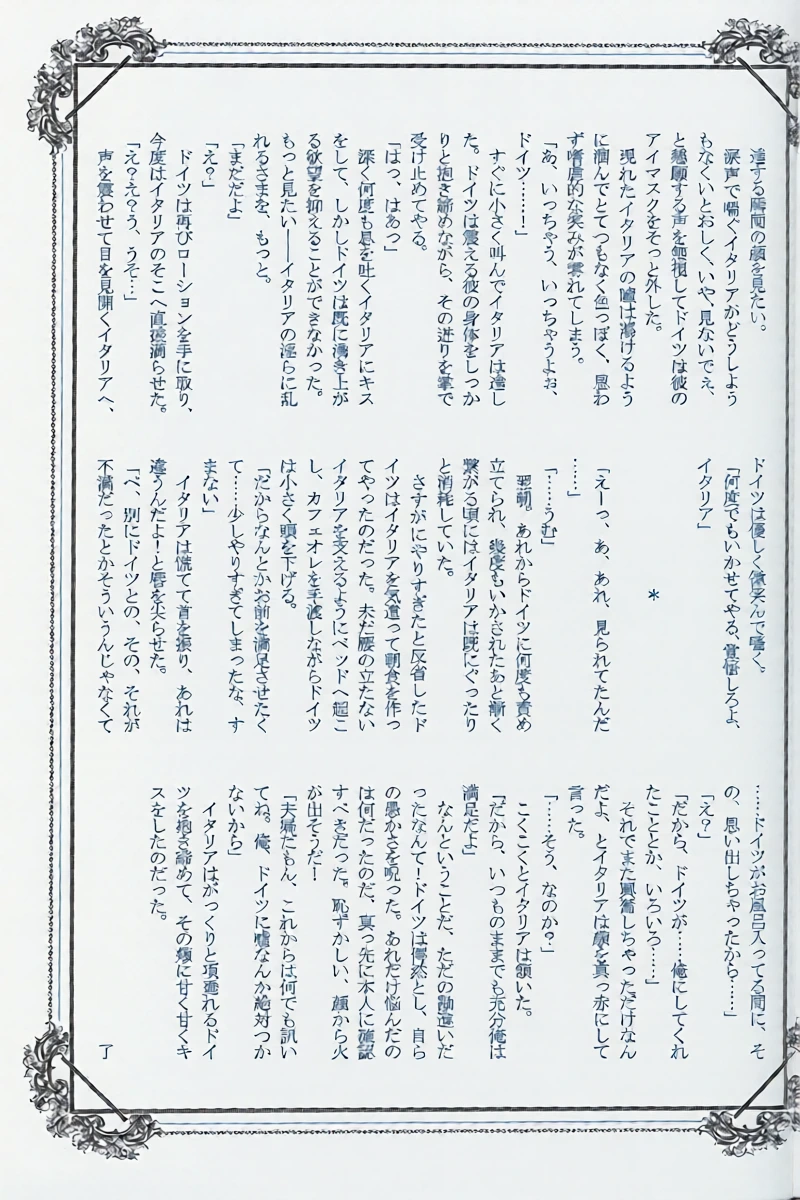 達する瞬間の顔を見たい。
涙声で喘ぐイタリアがどうしよう
もなくいとおしく、いや、見ないでぇ、
と懇願する声を無視してドイツは彼の
アイマスクをそっと外した。
現れたイタリアの瞳は溶けるよう
に潤んでとてつもなく色っぽく、思わ
ず嗜虐的な笑みが零れてしまう。
「あ、いっちゃう、いっちゃうよぉ、
ドイツ……！」
すぐに小さく叫んでイタリアは達し
た。ドイツは震える彼の身体をしっか
りと抱き締めながら、その迸りを掌で
受け止めてやる。
「はっ、はあっ」
深く何度も息を吐くイタリアにキス
をして、しかしドイツは既に湧き上が
る欲望を抑えることができなかった。
もっと見たい――イタリアの淫らに乱
れるさまを、もっと。
「まだだよ」
「え？」
ドイツは再びローションを手に取り、
今度はイタリアのそこへ直接滴らせた。
「え？え？う、うそ…」
声を震わせて目を見開くイタリアへ、
ドイツは優しく微笑んで囁く。
「何度でもいかせてやる、覚悟しろよ、
イタリア」
*
「えーっ、あ、あれ、見られてたんだ
……」
「……うむ」
翌朝。あれからドイツに何度も責め
立てられ、幾度もいかされたあと漸く
繋がる頃にはイタリアは既にぐったり
と消耗していた。
さすがにやりすぎたと反省したド
イツはイタリアを気遣って朝食を作っ
てやったのだった。未だ腰の立たない
イタリアを支えるようにベッドへ起こ
し、カフェオレを手渡しながらドイツ
は小さく頭を下げる。
「だからなんとかお前を満足させたく
て……少しやりすぎてしまったな、す
まない」
イタリアは慌てて首を振り、あれは
違うんだよ！と唇を尖らせた。
「べ、別にドイツとの、その、それが
不満だったとかそういうんじゃなくて
……ドイツがお風呂入ってる間に、そ
の、思い出しちゃったから……」
「え？」
「だから、ドイツが……俺にしてくれ
たこととか、いろいろ……」
それでまた興奮しちゃっただけなん
だよ、とイタリアは顔を真っ赤にして
言った。
「……そう、なのか？」
こくこくとイタリアは頷いた。
「だから、いつものままでも充分俺は
満足だよ」
なんということだ、ただの勘違いだ
ったなんて！ドイツは愕然とし、自ら
の愚かさを呪った。あれだけ悩んだの
は何だったのだ、真っ先に本人に確認
すべきだった。恥ずかしい、顔から火
が出そうだ！
「夫婦だもん、これからは何でも訊い
てね。俺、ドイツに嘘なんか絶対つか
ないから」
イタリアはがっくりと項垂れるドイ
ツを抱き締めて、その頬に甘く甘くキ
スをしたのだった。
了